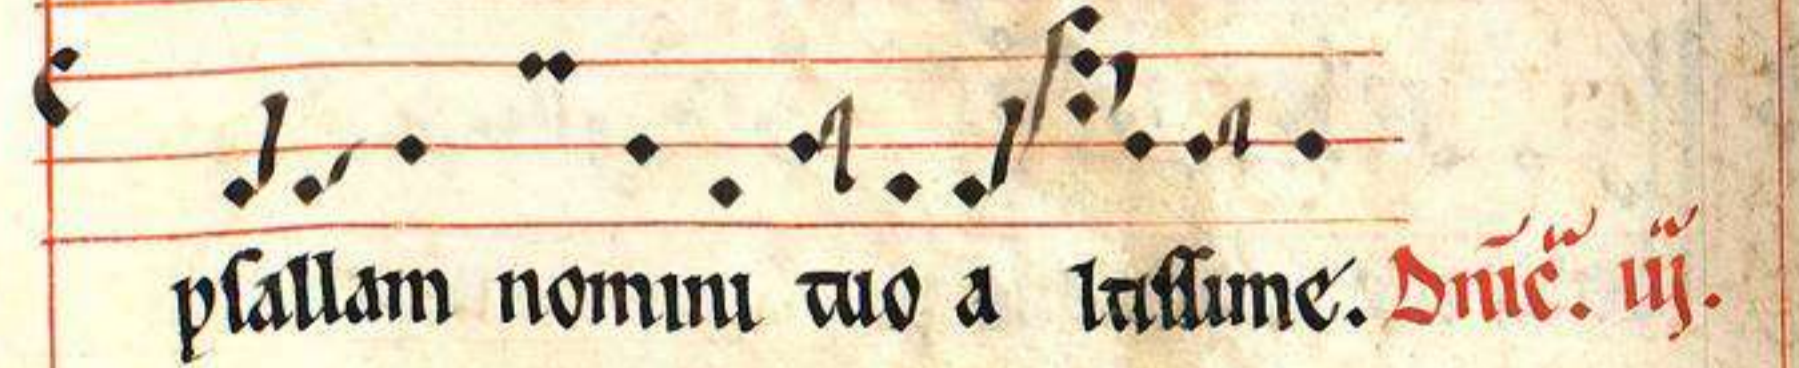 pſallam nomini tuo a ltiſſime. Dn̄ic̄. iij.